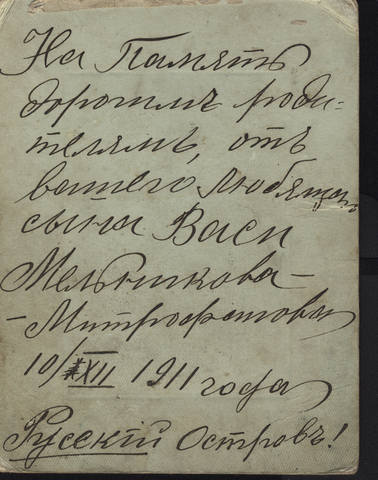 На Память
дорогимъ роди-
телямъ, отъ
вашего любящаго
сына Васи
Мельникова-
-Митрофанова
10/XII 1911 года
Русскій Островъ!